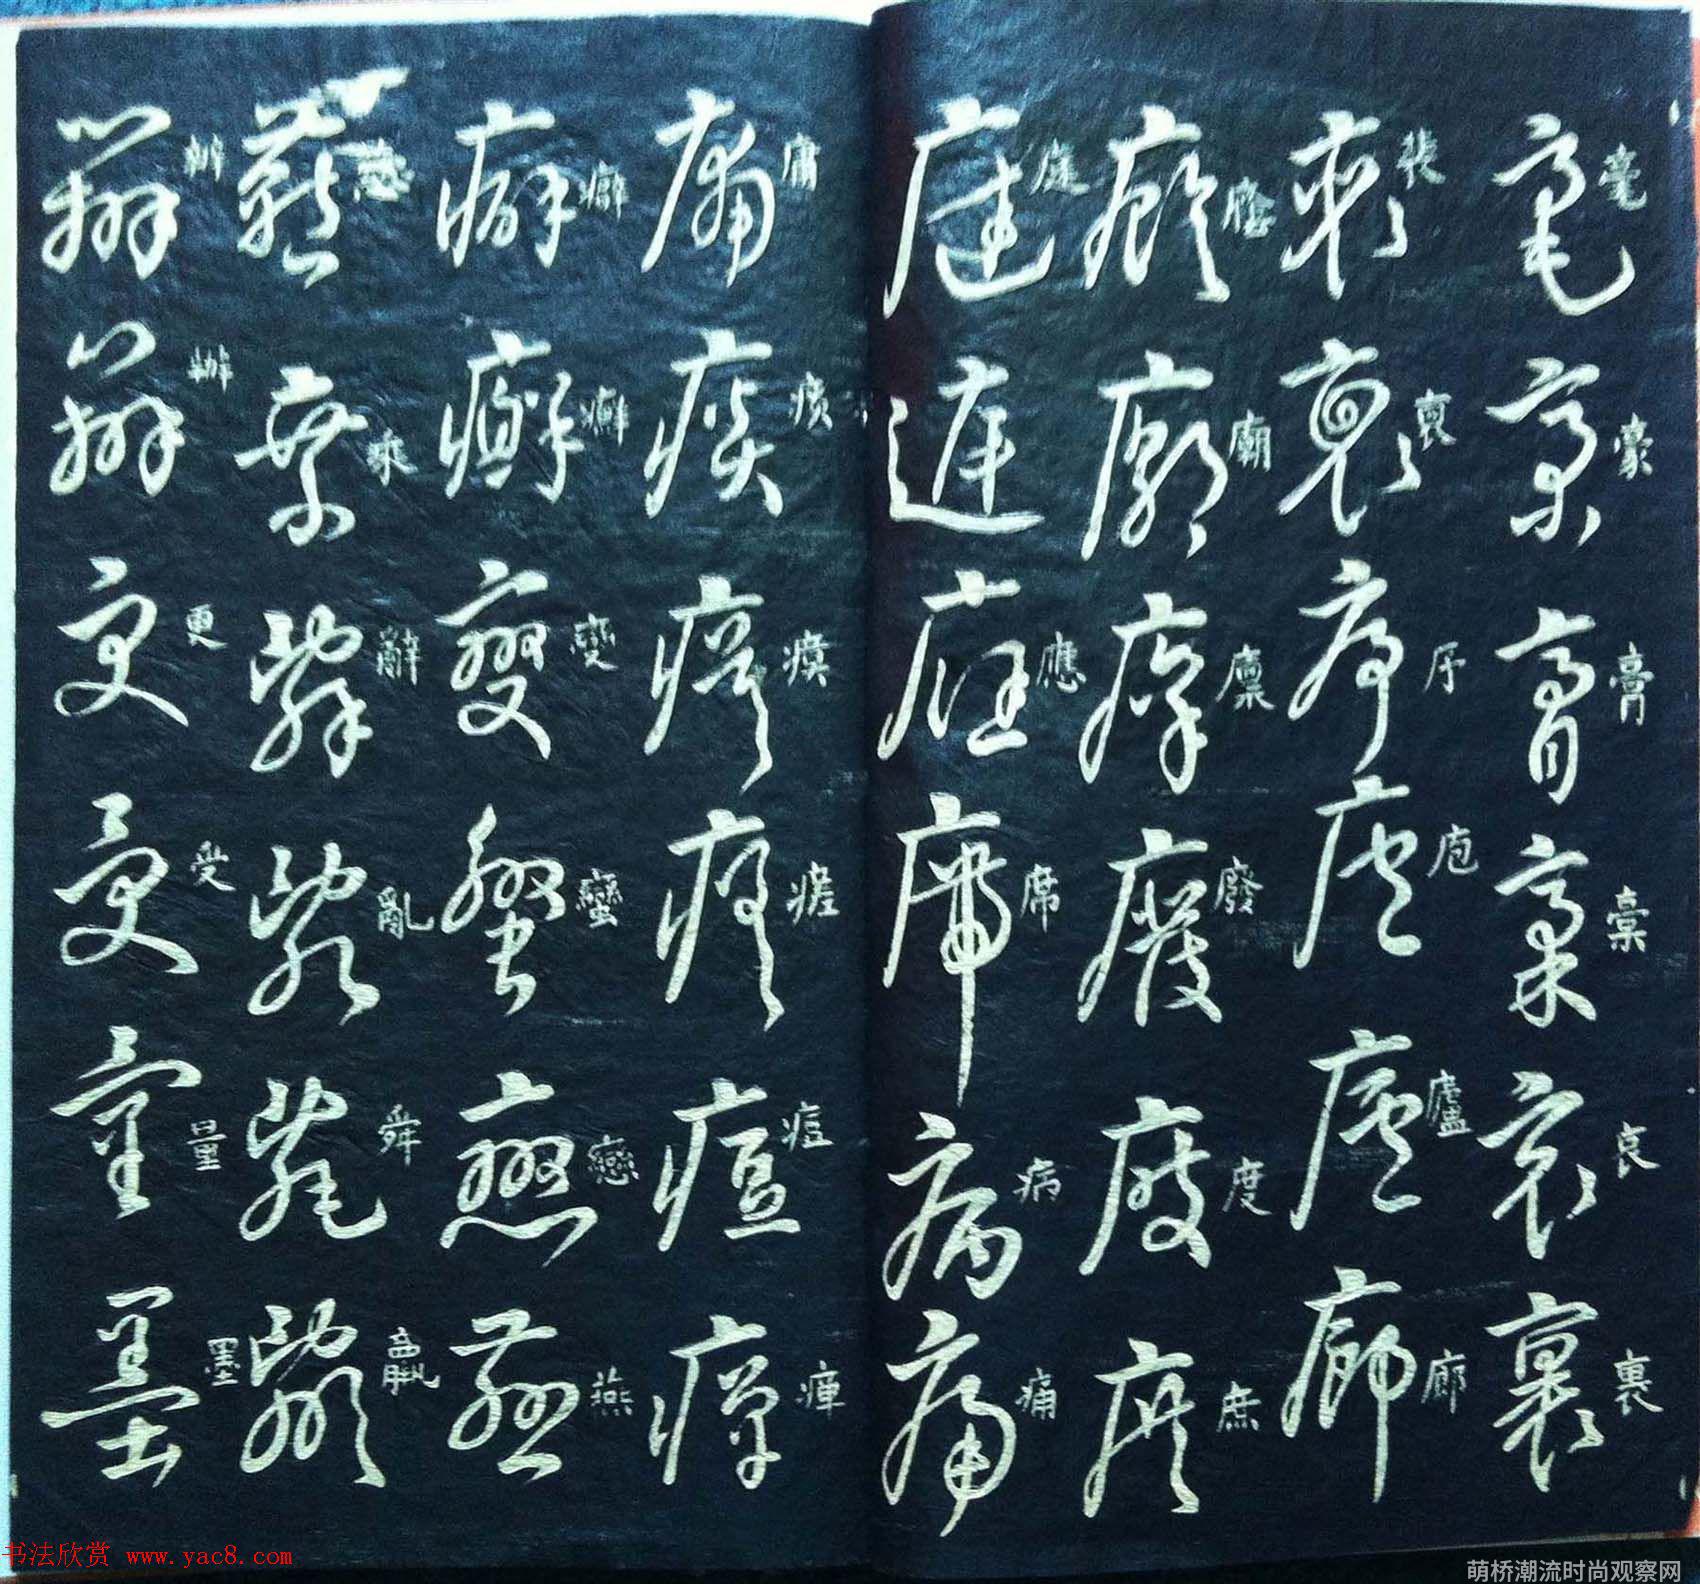 毫豪膏稾哀裏
裴裒序庖廬廊
廥廟廩廢度庶
庭遮應席病痛
庸瘓瘼瘥痘瘴
癖癬變蠻戀燕
乘辭亂舜贏
辨辦更受量墨
书法欣赏 www.yac8.com
萌桥潮流时尚观察网